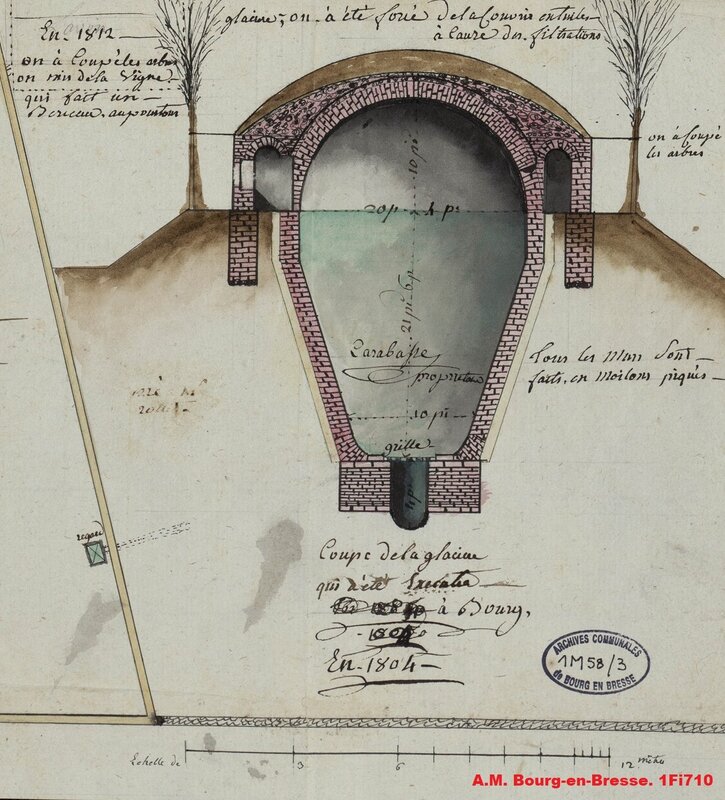 glacière; on à été forcé de la Couvrir en tuiles
à cause des filtrations
En 1812
on à Coupé les arbres
on mis de la Vigne
qui fait un
Berceau au pourtour
on à Coupé
les arbres
10 pi
20 p. 4 p.
21 pi 6 p
Larabasse
propriétaire
Tous les Murs Sont
faits, en Moilons piqués
10 pi
grille
4 p
regard
Coupe de la glacière
qui à été Executée
à Bourg,
En 1804
ARCHIVES COMMUNALES
1M58/3
de BOURG EN BRESSE
Echelle de 3 6 12 mètres
A.M. Bourg-en-Bresse. 1Fi710